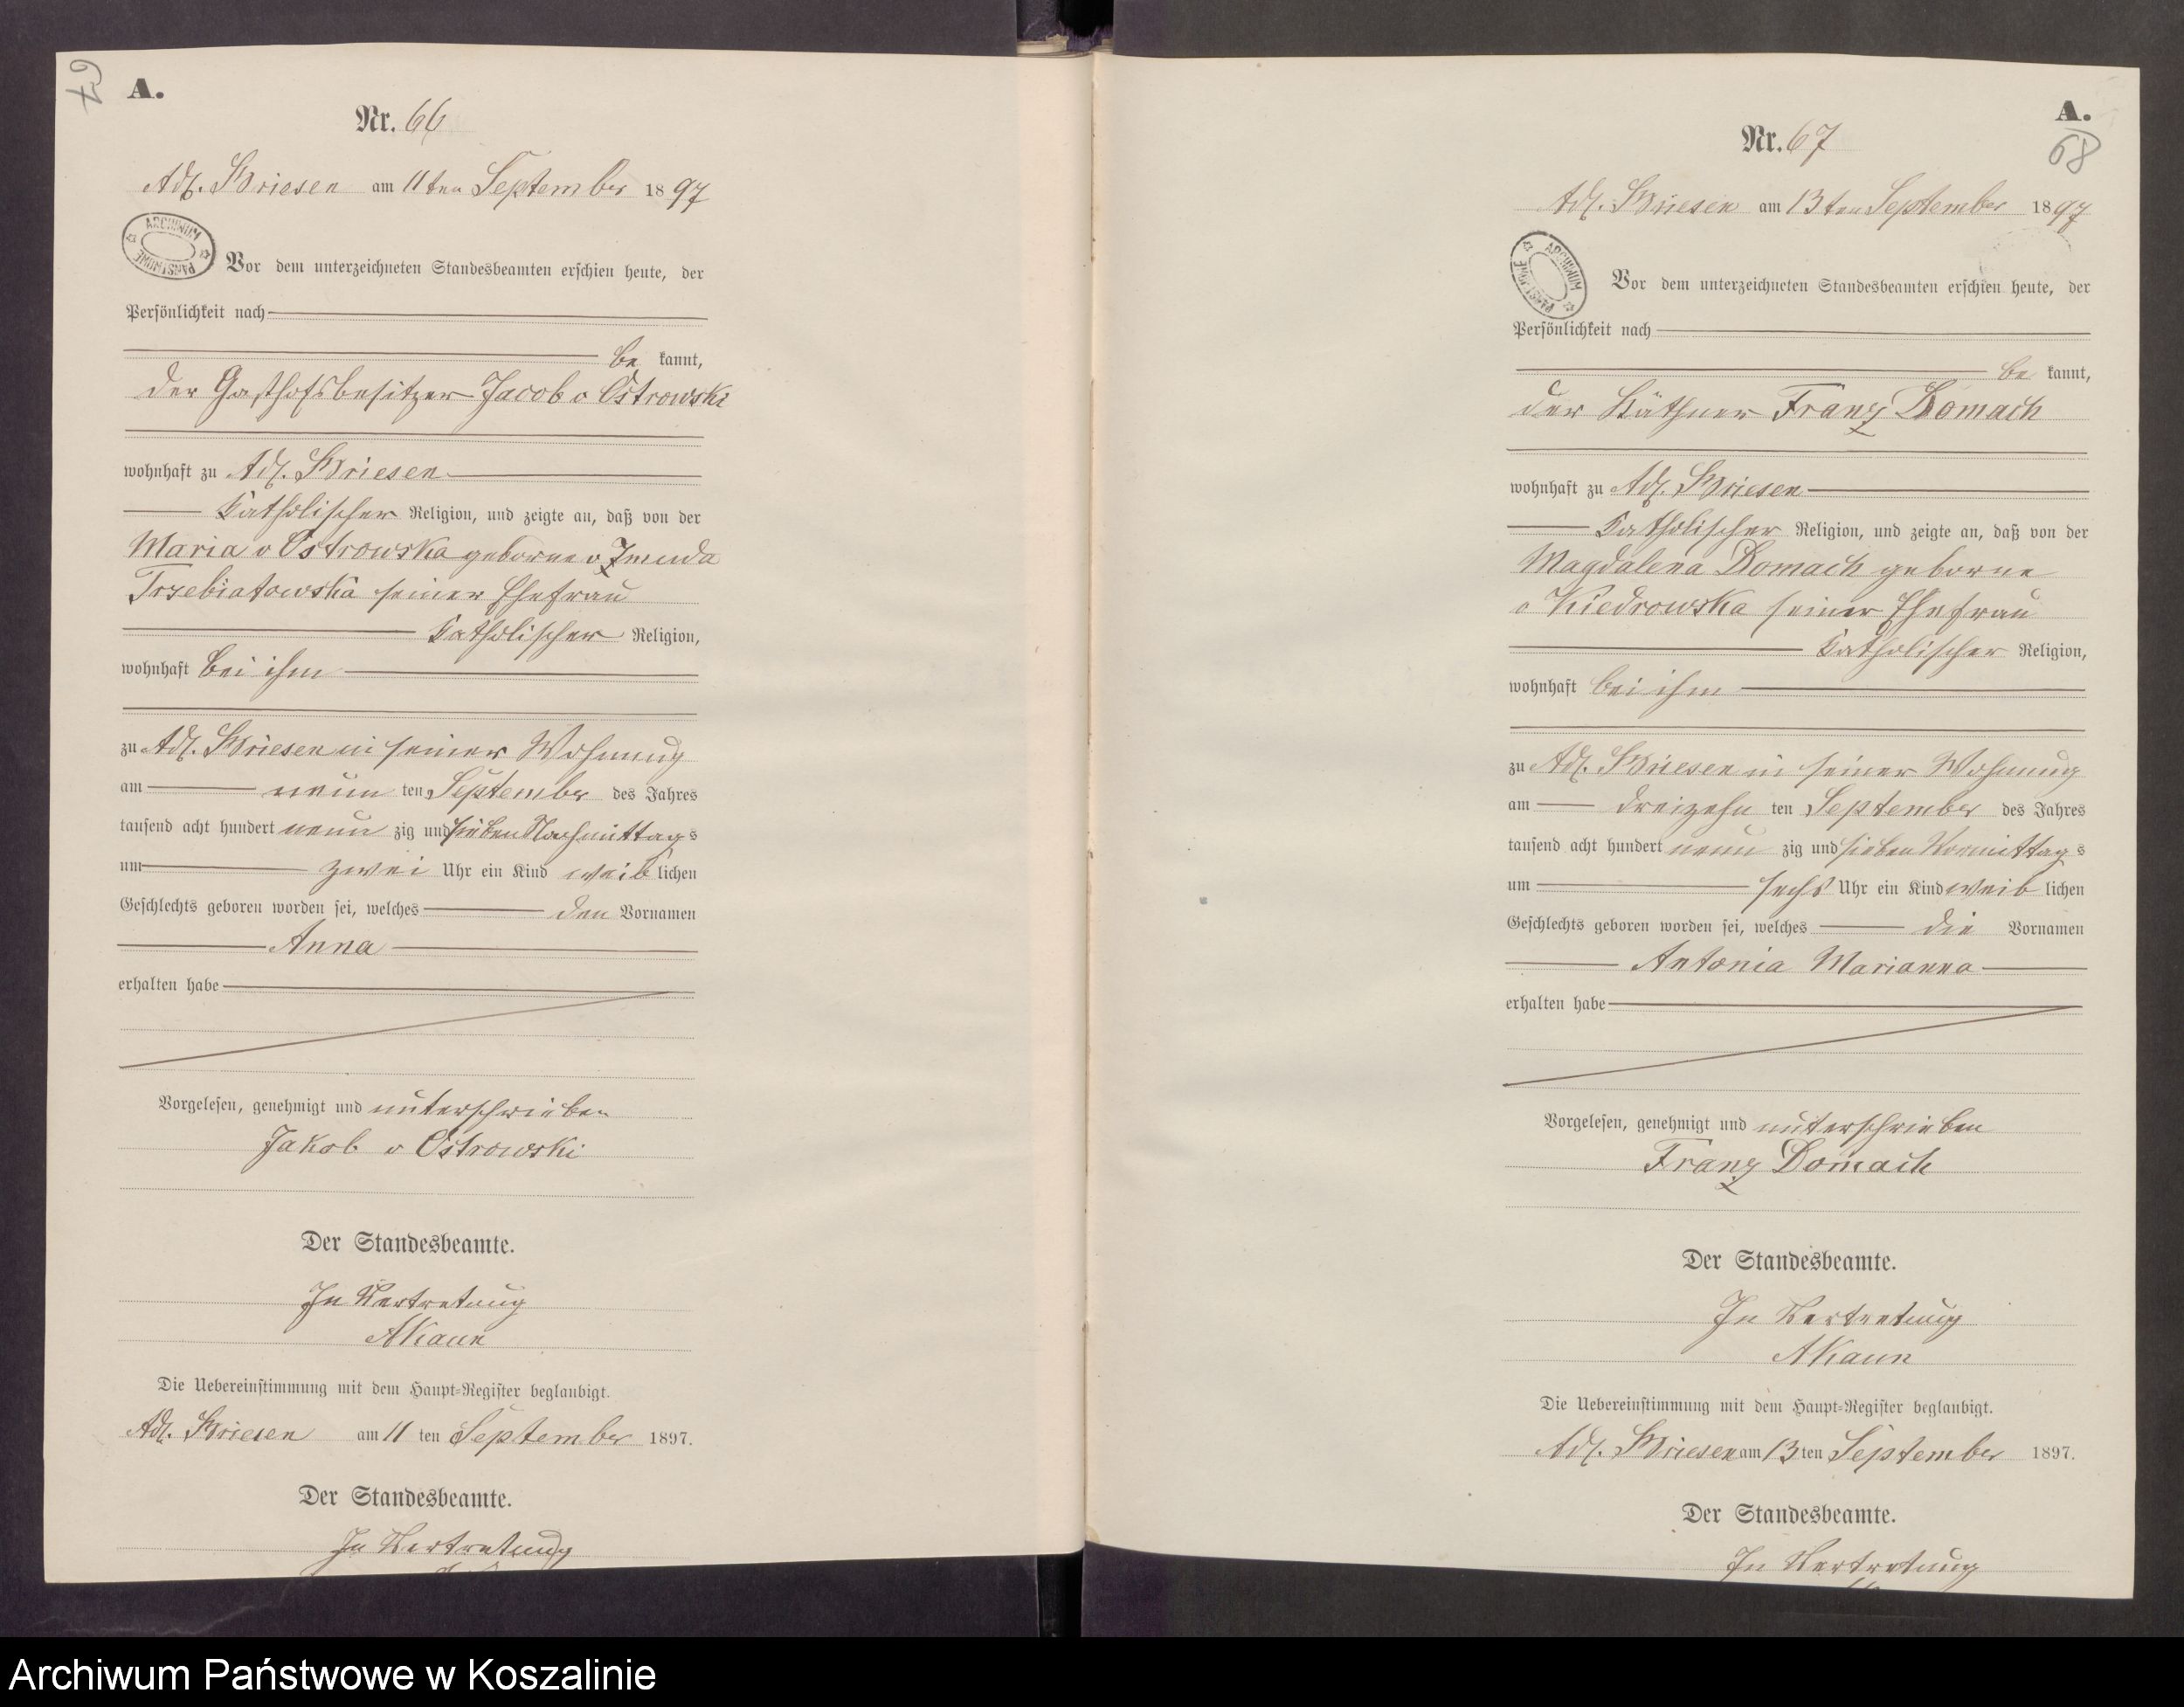 67
A.
Nr. 66
Adl. Briesen am 11ten September 1897
ARCHIWUM PAŃSTWOWE
Vor dem unterzeichneten Standesbeamten erschien heute, der
Persönlichkeit nach
be kannt,
der Gasthofsbesitzer Jacob v Ostrowski
wohnhaft zu Adl. Briesen
Katholischer Religion, und zeigte an, daß von der
Maria v Ostrowska geborne v Zmuda
Trzebiatowska seiner Ehefrau
Katholischer Religion,
wohnhaft bei ihm
zu Adl. Briesen in seiner Wohnung
am neun ten September des Jahres
tausend acht hundert neun zig und sieben Nachmittags
um zwei Uhr ein Kind weib lichen
Geschlechts geboren worden sei, welches den Vornamen
Anna
erhalten habe
Vorgelesen, genehmigt und unterschrieben
Jakob v Ostrowski
Der Standesbeamte.
In Vertretung
AKaun
Die Uebereinstimmung mit dem Haupt-Register beglaubigt.
Adl. Briesen am 11 ten September 1897.
Der Standesbeamte.
In Vertretung
A.
68
Nr. 67
Adl. Briesen am 13ten September 1897
ARCHIWUM PAŃSTWOWE
Vor dem unterzeichneten Standesbeamten erschien heute, der
Persönlichkeit nach
be kannt,
der Käthner Franz Domach
wohnhaft zu Adl. Briesen
Katholischer Religion, und zeigte an, daß von der
Magdalena Domach geborne
v Kiedrowska seiner Ehefrau
Katholischer Religion,
wohnhaft bei ihm
zu Adl. Briesen in seiner Wohnung
am dreizehn ten September des Jahres
tausend acht hundert neun zig und sieben Vormittags
um sechs Uhr ein Kind weib lichen
Geschlechts geboren worden sei, welches die Vornamen
Antonia Marianna
erhalten habe
Vorgelesen, genehmigt und unterschrieben
Franz Domach
Der Standesbeamte.
In Vertretung
AKaun
Die Uebereinstimmung mit dem Haupt-Register beglaubigt.
Adl. Briesen am 13ten September 1897.
Der Standesbeamte.
In Vertretung
Archiwum Państwowe w Koszalinie